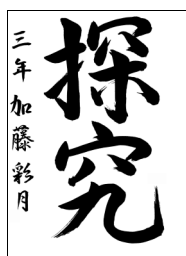 探究
三年 加藤 彩月